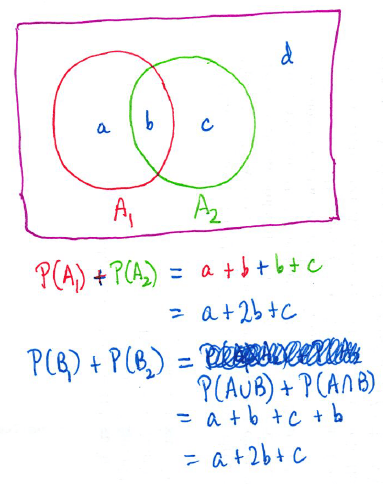 d
a b c
A₁ A₂
P(A₁) + P(A₂) = a + b + b + c
= a + 2b + c
P(B₁) + P(B₂) =
P(A∪B) + P(A∩B)
= a + b + c + b
= a + 2b + c